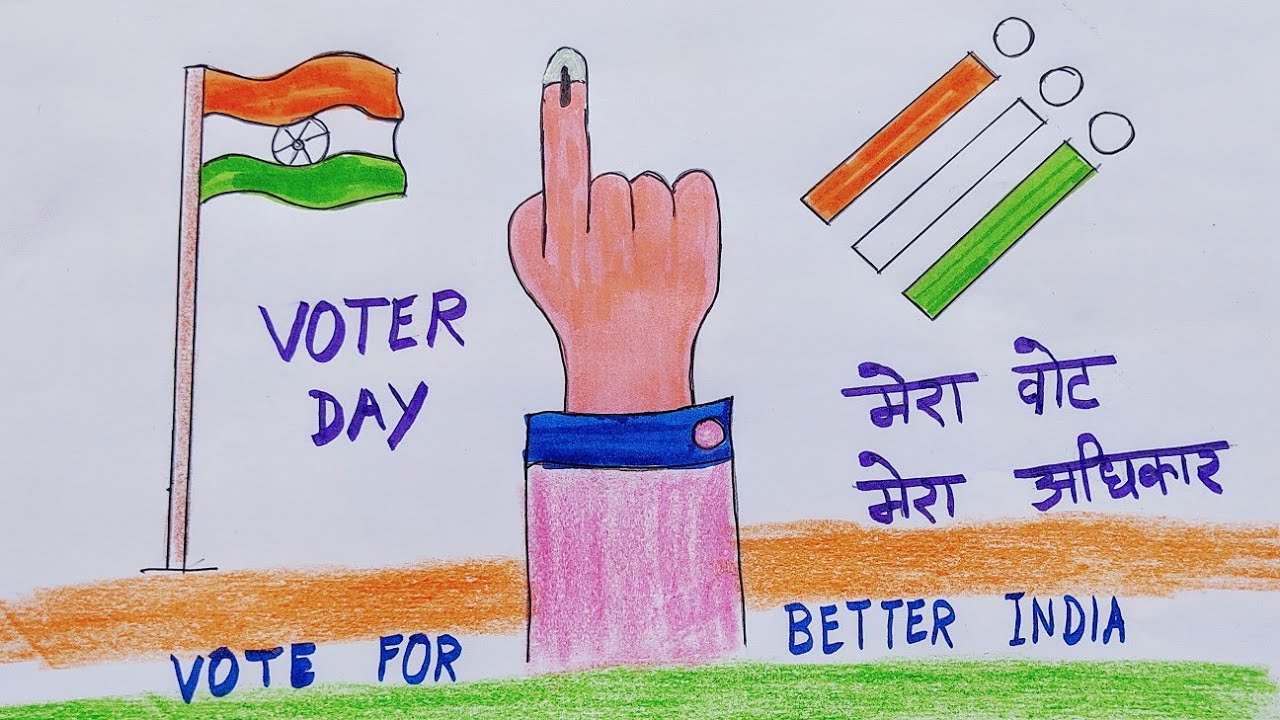 VOTER
DAY
मेरा वोट
मेरा अधिकार
VOTE FOR BETTER INDIA